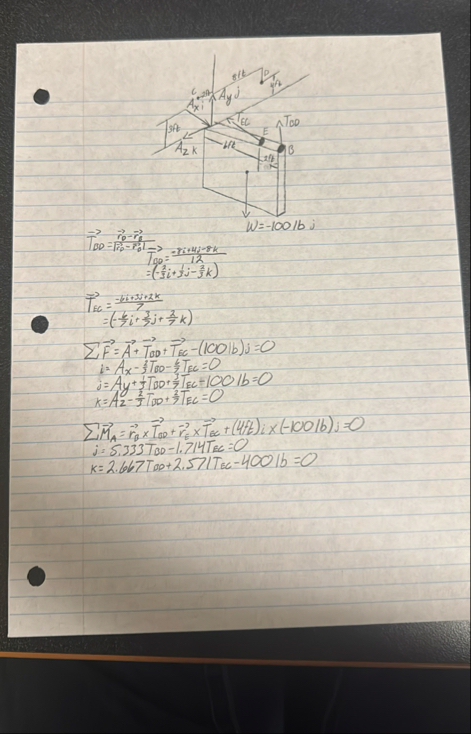 8ft
D
4ft
C
2ft
Ax i
Ay j
TEC
TBD
3ft
E
B
Az k
6ft
2ft
W=-100 lb j
TBD = rD-rB / |rD-rB|
TBD = -8i+4j-8k / 12
=(-2/3i+1/3j-2/3k)
TEC = -6i+3j+2k / 7
=(-6/7i+3/7j+2/7k)
ΣF=A+TBD+TEC-(100lb)j=0
i= Ax-2/3TBD-6/7TEC=0
j= Ay+1/3TBD+3/7TEC-100lb=0
k= Az-2/3TBD+2/7TEC=0
ΣMA=rB×TBD+rE×TEC+(4ft)i×(-100lb)j=0
j= 5.333TBD-1.714TEC=0
k= 2.667TBD+2.571TEC-400lb=0